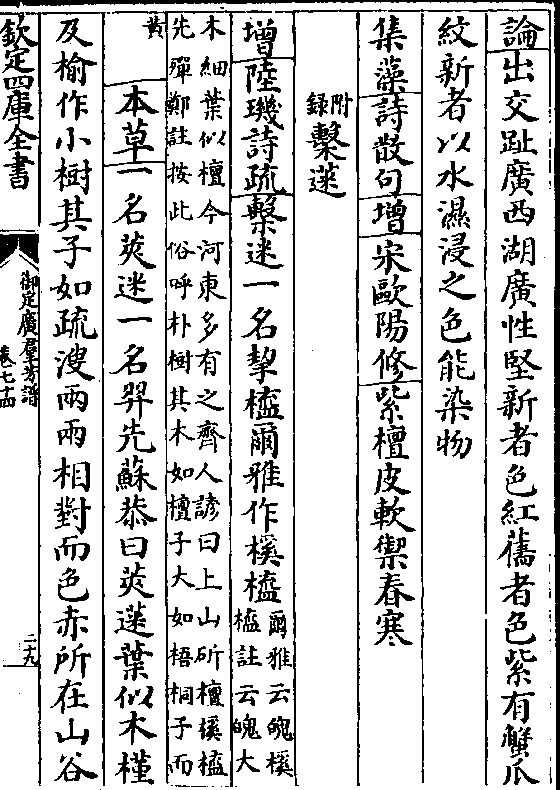 論出交趾廣西湖廣性堅新者色紅舊者色紫有蟹爪
紋新者以水濕浸之色能染物
集藻詩散句增宋歐陽修紫檀皮軟禦春寒
附錄繫蒾
增陸璣詩疏繫迷一名挈橀爾雅作榽橀
爾雅云魄榽
橀註云魄大
木細葉似檀今河東多有之齊人諺曰上山斫檀榽橀
先殫鄭註按此俗呼朴樹其木如檀子大如梧桐子而
黄
本草一名莢迷一名羿先蘇恭曰莢蒾葉似木槿
及榆作小樹其子如疏溲兩兩相對而色赤所在山谷
欽定四庫全書
御定廣羣芳譜
卷七十四
二十九